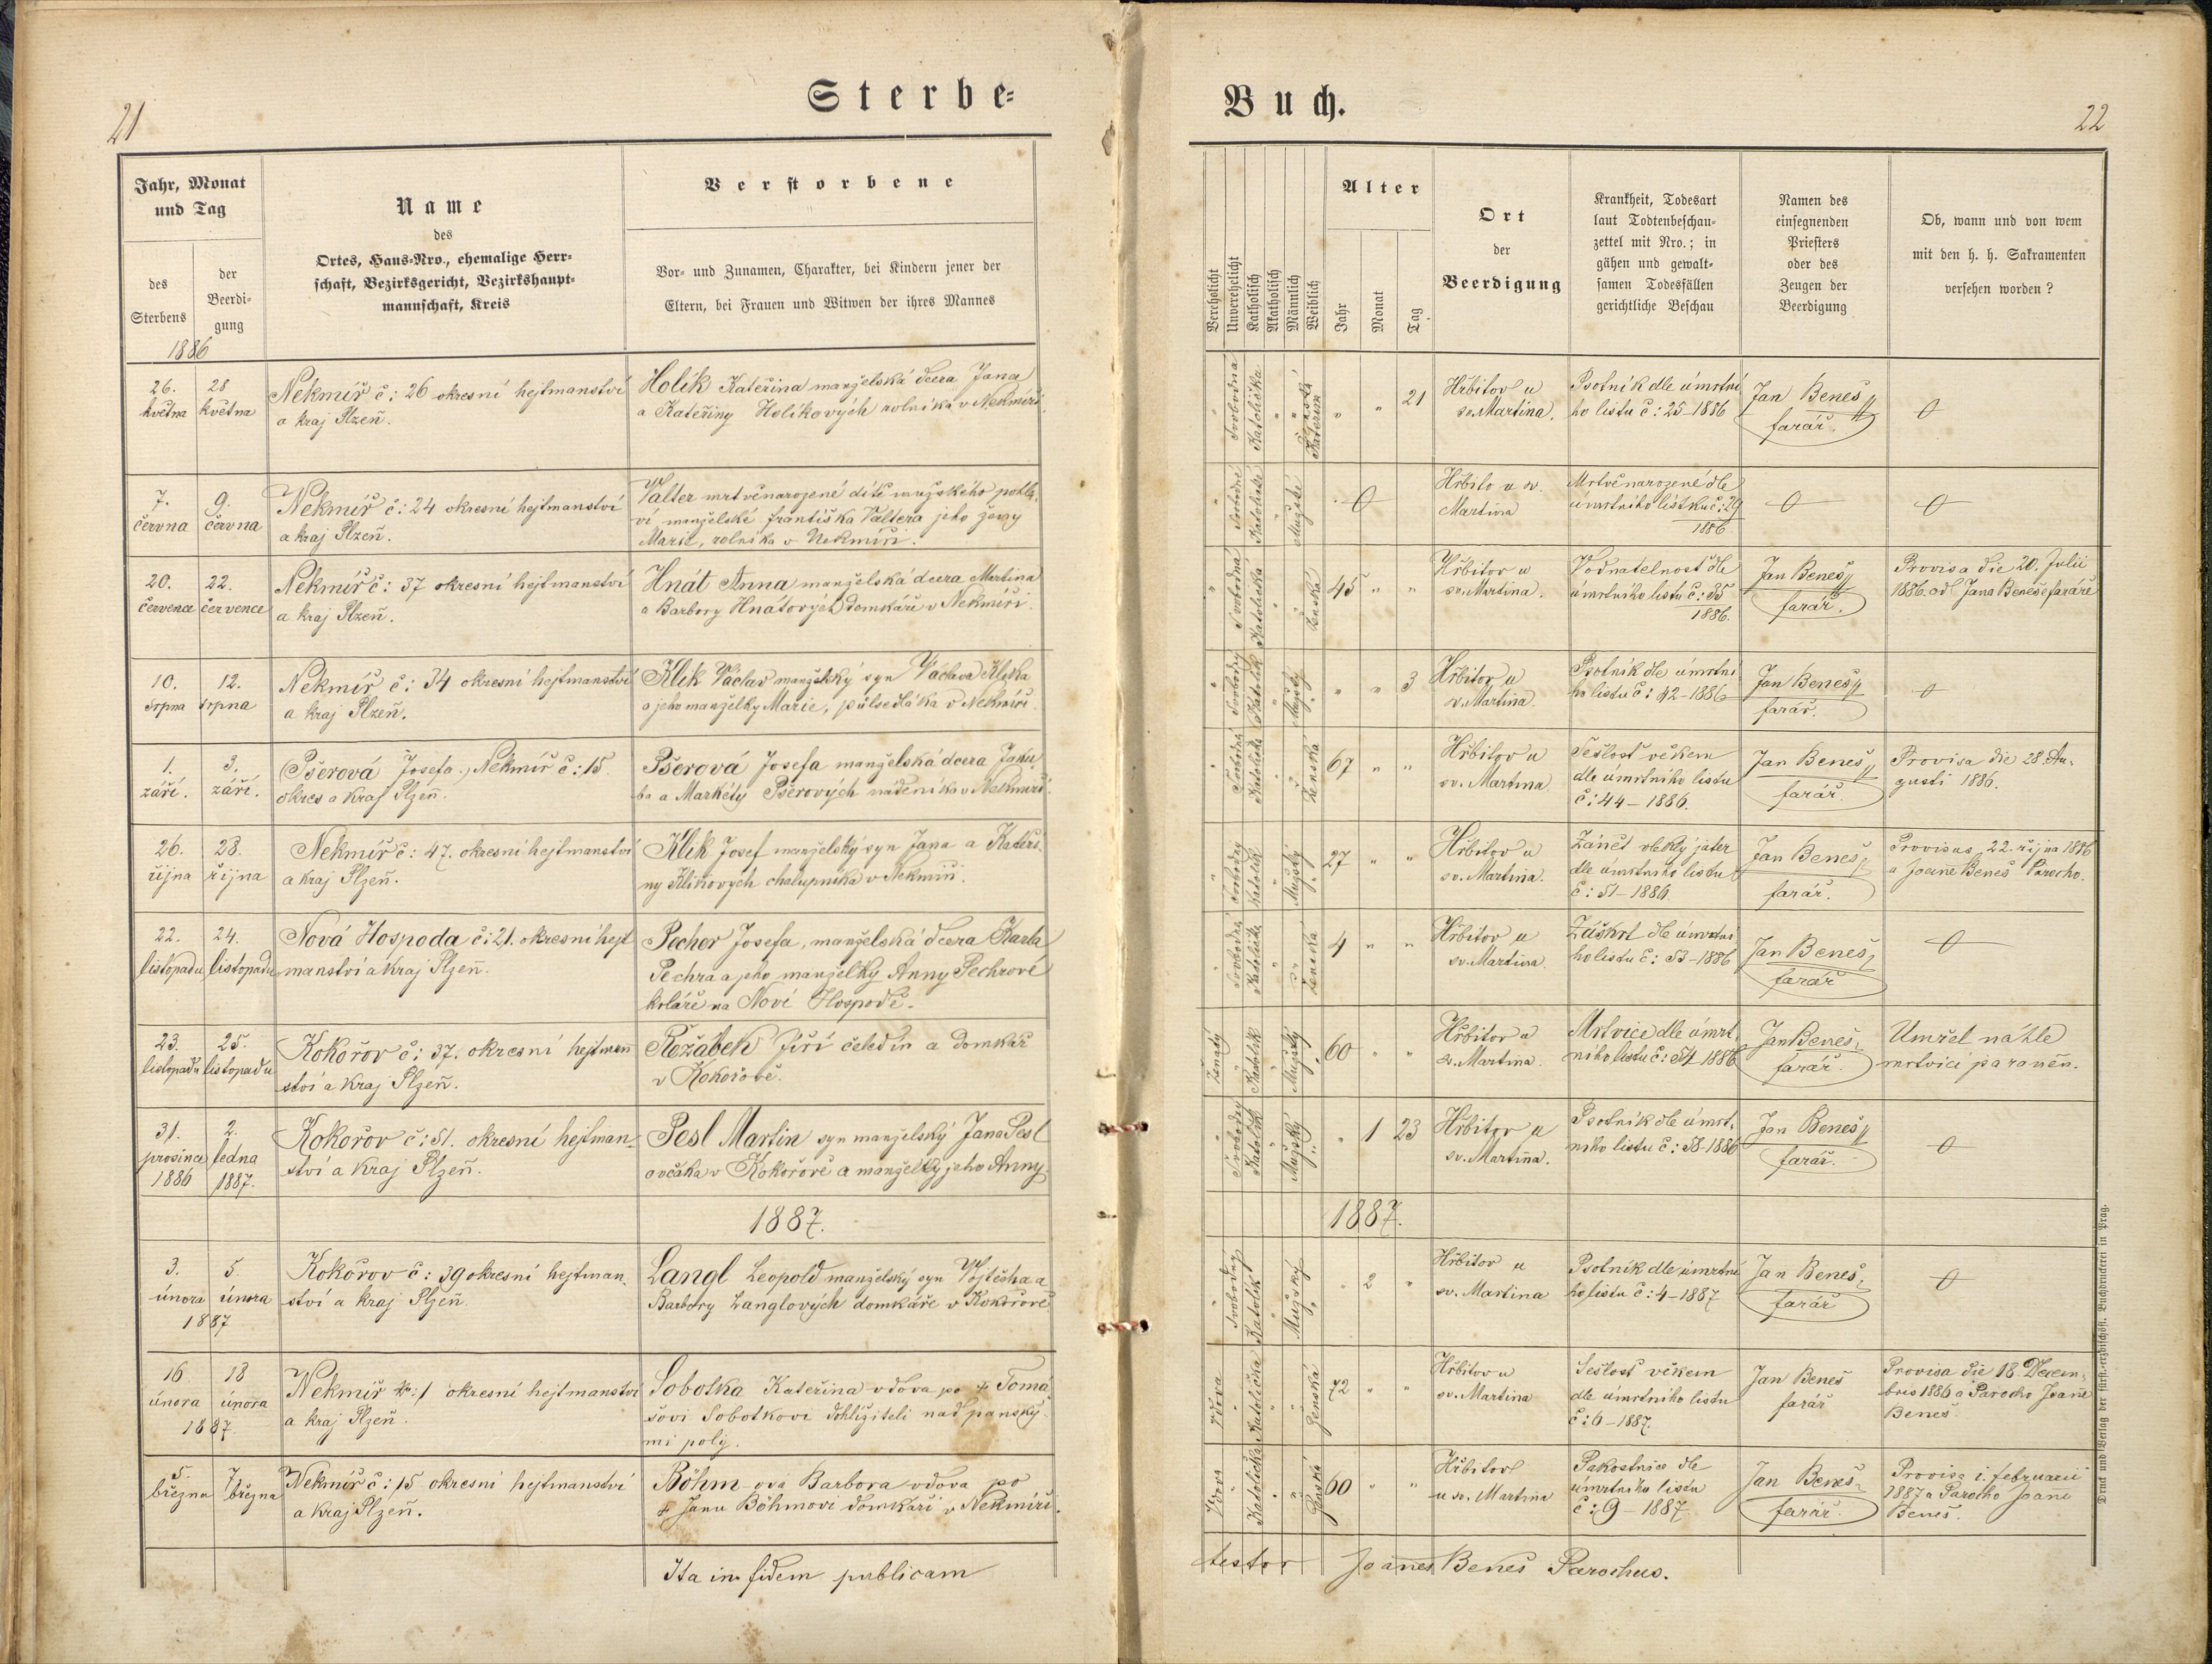 21
Sterbe=
Jahr, Monat
und Tag
des
Sterbens
der
Beerdi=
gung
Name
des
Ortes, Haus=Nro., ehemalige Herr=
schaft, Bezirksgericht, Bezirkshaupt=
mannschaft, Kreis
Verstorbene
Vor= und Zunamen, Charakter, bei Kindern jener der
Eltern, bei Frauen und Witwen der ihres Mannes
1886
26.
května
28
května
Nekmíř č: 26 okresní hejtmanství
a kraj Plzeň.
Holík Kateřina manželská dcera Jana
a Kateřiny Holíkových rolníka v Nekmíři
7.
června
9.
června
Nekmíř č: 24 okresní hejtmanství
a kraj Plzeň.
Valter mrtvěnarozené dítě mužského pohla,
ví manželské františka Valtera jeho ženy
Marie, rolníka v Nekmíři.
20.
července
22.
července
Nekmíř č: 37 okresní hejtmanství
a kraj Plzeň.
Hnát Anna manželská dcera Martina
a Barbory Hnátových domkáře v Nekmíři.
10.
srpna
12.
srpna
Nekmíř č: 34 okresní hejtmanství
a kraj Plzeň.
Klik Václav manželský syn Václava Klika
a jeho manželky Marie, půlsedláka v Nekmíři.
1.
září.
3.
září.
Pšerová Josefa, Nekmíř č: 15.
okres a kraj Plzeň.
Pšerová Josefa manželská dcera Jaku,
ba a Markéty Pšerových nádeníka v Nekmíři.
26.
října
28.
října
Nekmíř č: 47. okresní hejtmanství
a kraj Plzeň.
Klik Josef manželský syn Jana a Kateři,
ny Klikových chalupníka v Nekmíři.
22.
listopadu
24.
listopadu
Nová Hospoda č: 21. okresní hejt
manství a kraj Plzeň.
Pecher Josefa, manželská dcera Karla
Pechra a jeho manželky Anny Pechrové
koláře na Nové Hospodě.
23.
listopadu
25.
listopadu
Kokořov č: 37. okresní hejtman
ství a kraj Plzeň.
Režábek Jiří čeledín a domkář
v Kokořově.
31.
prosince
1886
2.
ledna
1887.
Kokořov č: 51. okresní hejtman
ství a kraj Plzeň.
Pesl Martin syn manželský Jana Pesl
ovčáka v Kokořově a manželky jeho Anny
1887.
3.
února
5.
února
1887
Kokořov č: 39 okresní hejtman,
ství a kraj Plzeň
Langl Leopold manželský syn Vojtěcha a
Barbory Langlových domkáře v Kokořově
16
února
18
února
1887.
Nekmíř č: 1 okresní hejtmanství
a kraj Plzeň.
Sobotka Kateřina vdova po + Tomá
šovi Sobotkovi dohlížiteli nad panský
mi poly.
5.
března
7
března
Nekmíř č: 15 okresní hejtmanství
a kraj Plzeň.
Böhm ova Barbora vdova po
+ Janu Böhmovi domkáři v Nekmíři.
Ita in fidem publicam
Buch.
22
Verehelicht
Unverehelicht
Katholisch
Akatholisch
Männlich
Weiblich
Alter
Jahr
Monat
Tag
Ort
der
Beerdigung
Krankheit, Todesart
laut Todtenbeschau=
zettel mit Nro.; in
gähen und gewalt=
samen Todesfällen
gerichtliche Beschau
Namen des
einsegnenden
Priesters
oder des
Zeugen der
Beerdigung
Ob, wann und von wem
mit den h. h. Sakramenten
versehen worden?
Svobodná
Katolička
21
Hřbitov u
sv. Martina.
Psotník dle úmrtní
ho listu č: 25-1886
Jan Beneš
farář.
0
Svobodné
Katolické
Mužské
0
Hřbito u sv.
Martina
Mrtvěnarozené dle
úmrtního lístku č: 29
1886
0
0
Svobodná
Katolička
Ženská
45 " "
Hřbitov u
sv. Martina.
Vodnatelnost dle
úmrtního listu č: 35
1886.
Jan Beneš
farář.
Provisa die 20. Julii
1886. od Jana Beneše faráře
Svobodný
Katolík
Mužský
" " 3
Hřbitov u
sv. Martina.
Psotník dle úmrtní
ho listu č: 42-1886
Jan Beneš
farář.
0
Svobodná
Katolička
Ženská
67 " "
Hřbitov u
sv. Martina
Sešlosť věkem
dle úmrtního listu
č: 44 - 1886.
Jan Beneš
farář.
Provisa die 28. Au,
gusti 1886.
Svobodný
Katolík
Mužský
27 " "
Hřbitov u
sv. Martina.
Zánět obkly jater
dle úmrtního listu
č: 51-1886.
Jan Beneš
farář.
Provisus 22. října 1886
a Joanne Beneš Parocho.
Svobodná
Katolička
Ženská
4 " "
Hřbitov u
sv. Martina.
Záškrt dle úmrtní
ho listu č: 53-1886
Jan Beneš
farář
0
Ženatý
Katolík
Mužský
60 " "
Hřbitov u
sv. Martina.
Mrtvice dle úmrt,
ního listu č: 54 1886
Jan Beneš
farář.
Umřel náhle
mrtvicí paraněn.
Svobodný
Katolík
Mužský
" 1 23
Hřbitov u
sv. Martina.
Psotník dle úmrt,
ního listu č: 58-1886
Jan Beneš
farář.
0
1887.
Svobodný
Katolík
Mužský
" 2 "
Hřbitov u
sv. Martina
Psotník dle úmrtní
ho listu č: 4-1887
Jan Beneš
farář
0
Vdova
Katolička
Ženská
72 " "
Hřbitov u
sv. Martina
Sešlosť věkem
dle úmrtního listu
č: 6-1887.
Jan Beneš
farář
Provisa die 18. Decem,
bris 1886 a Parocho Joane
Beneš.
Vdova
Katolička
Ženská
60 " "
Hřbitov
u sv. Martina
Pakostnice dle
úmrtního listu
č: 9 - 1887.
Jan Beneš
farář.
Provisa 1. februarii
1887 a Parocho Joane
Beneš.
testor Joannes Beneš Parochus.
Druck und Verlag der fürst.=erzbischöfl. Buchdruckerei in Prag.